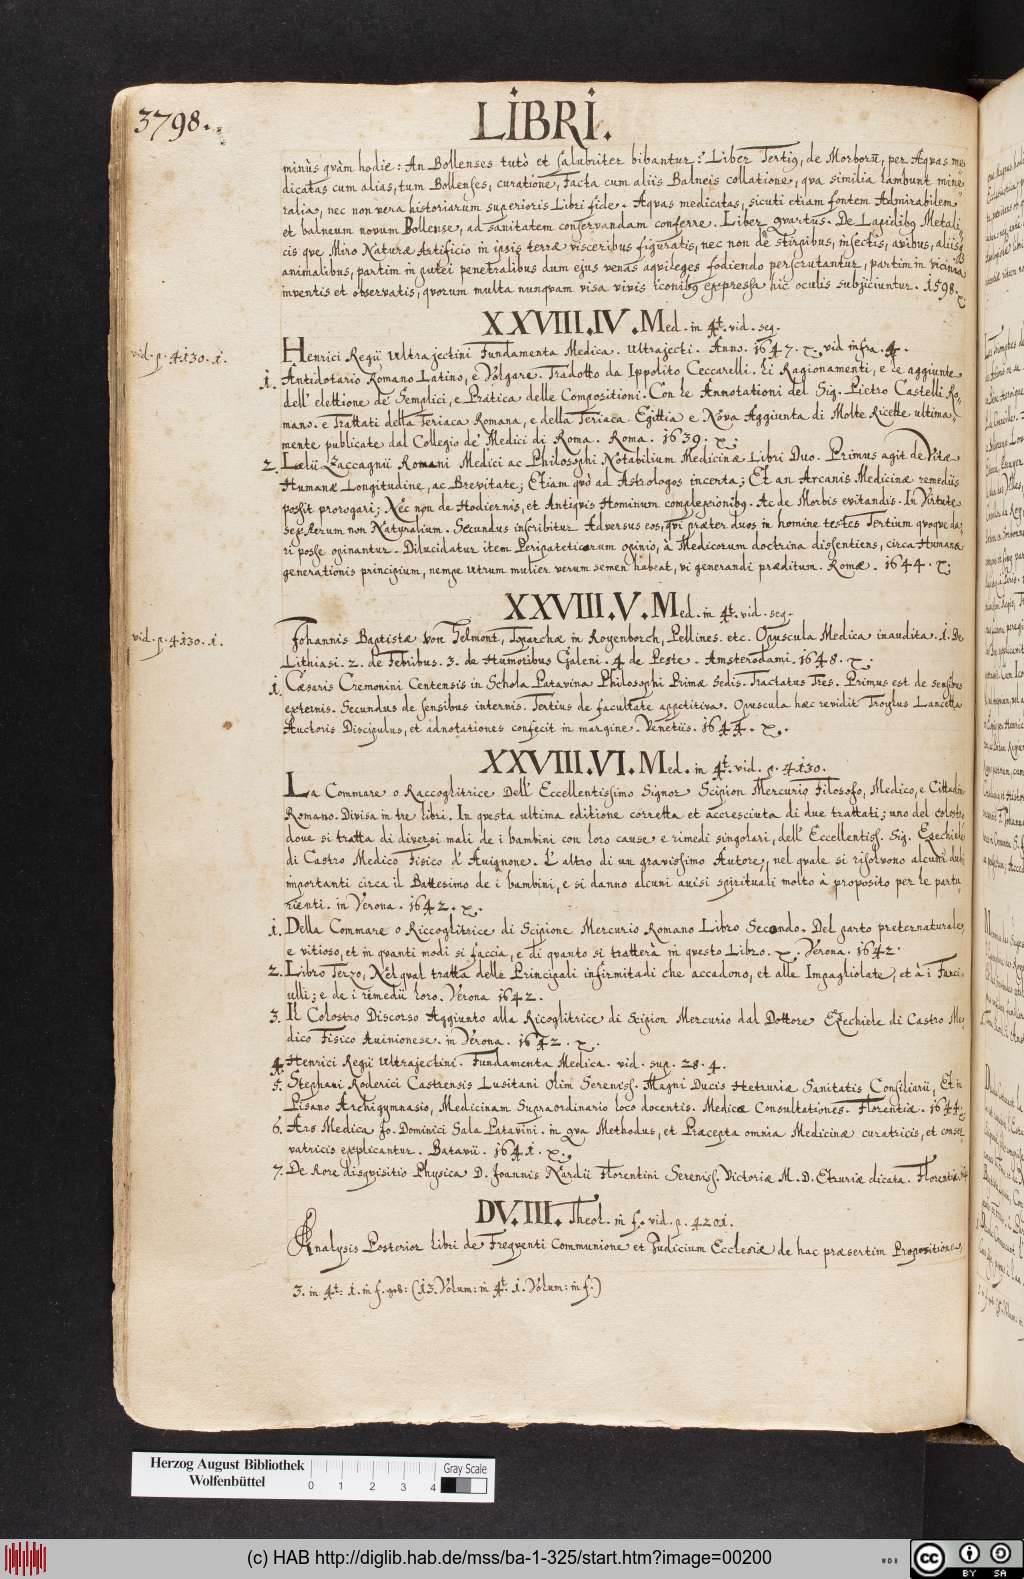 3798.
LIBRI.
minùs qvàm hodie: An Bollenses tutò et salubriter bibantur: Liber Tertig, de Morborũ, per Aqvas me-
dicatas cum alias, tum Bollenses, curatione, facta cum aliis Balneis collatione, qva similia lambunt mine-
ralia, nec non vera historiarum superioris Libri fide. Aqvas medicatas, sicuti etiam fontem Admirabilem
et balneum novum Bollense, ad sanitatem conservandam conferre. Liber qvartus. De Lapidibg Metali-
cis qve Miro Naturæ Artificio in ipsis terræ visceribus figuratis, nec non de stirpibus, insectis, avibus, aliisq
animalibus, partim in putei penetralibus dum ejus venas aqvileges fodiendo perscrutantur, partim in vicinia
inventis et observatis, qvorum multa nunqvam visa vivis iconibg expressa hîc oculis subjiciuntur. 1598.
XXVIII.IV. Med. in 4t. vid. seq.
vid. p. 4130. 1.
Henrici Regii Ultrajectini Fundamenta Medica. Ultrajecti. Anno. 1647. x. vid infra. 4.
1. Antidotario Romano Latino, e Volgare. Tradotto da Ippolito Ceccarelli. Li Ragionamenti, e le aggiunte
dell' elettione de' Semplici, e Pratica delle Compositioni. Con le Annotationi del Sig. Pietro Castelli Ro-
mano. e Trattati della Teriaca Romana, e della Teriaca Egittia e Nova Aggiunta di Molte Ricette ultima-
mente publicate dal Collegio de' Medici di Roma. Roma. 1639. x.
2. Lælii Zaccagnii Romani Medici ac Philosophi Notabilium Medicinæ Libri Duo. Primus agit de Vitæ
Humanæ Longitudine, ac Brevitate; Etiam qvò ad Astrologos incerta; Et an Arcanis Medicinæ remediis
possit prorogari; Nec non de Hodiernis, et Antiqvis Hominum complexionibg. Ac de Morbis evitandis. In Virtute
sex rerum non Naturalium. Secundus inscribitur. Adversus eos, qvi præter duos in homine testes Tertium qvoque da-
ri posse opinantur. Dilucidatur item Peripateticorum opinio, à Medicorum doctrina dissentiens, circa Humanæ
generationis principium, nempe utrum mulier verum semen habeat, vi generandi præditum. Romæ. 1644. x.
XXVIII.V. Med. in 4t. vid. seq.
vid. p. 4130. 1.
Johannis Baptistæ von Helmont, Toparchæ in Royenborch, Pellines. etc. Opuscula Medica inaudita. 1. De
Lithiasi. 2. de Febribus. 3. de Humoribus Galeni. 4 de Peste. Amsterodami. 1648. x.
1. Cæsaris Cremonini Centensis in Schola Patavina Philosophi Primæ Sedis. Tractatus Tres. Primus est de sensibus
externis. Secundus de sensibus internis. Tertius de facultate appetitiva. Opuscula hæc revidit Troylus Lancetta
Auctoris Discipulus, et adnotationes confecit in margine. Venetiis. 1644. x.
XXVIII.VI. Med. in 4t. vid. p. 4130.
La Commare o Raccoglitrice Dell' Eccellentissimo Signor Scipion Mercurio Filosofo, Medico, e Cittadin
Romano. Divisa in tre libri. In qvesta ultima editione corretta et accresciuta di due trattati; uno del colostro
dove si tratta di diversi mali de i bambini con loro cause e rimedi singolari, dell' Eccellentiss. Sig. Ezechiele
di Castro Medico Fisico d' Avignone. L' altro di un gravissimo Autore, nel qvale si risolvono alcuni dubi
importanti circa il Battesimo de i bambini, e si danno alcuni avisi spirituali molto à proposito per le partu-
rienti. in Verona. 1642. x.
1. Della Commare o Riccoglitrice di Scipione Mercurio Romano Libro Secondo. Del parto preternaturale,
e vitioso, et in qvanti modi si faccia, e di qvanto si tratterà in qvesto Libro. x. Verona. 1642.
2. Libro Terzo, Nel qval tratta delle Principali infirmitadi che accadono, et alle Impagliolate, et à i Fanci-
ulli; e de i rimedii loro. Verona 1642.
3. Il Colostro Discorso Aggiunto alla Ricoglitrice di Scipion Mercurio dal Dottore Ezechiele di Castro Me-
dico Fisico Avinionese. in Verona. 1642. x.
4. Henrici Regii Ultrajectini. Fundamenta Medica. vid. sup. 28. 4.
5. Stephani Roderici Castrensis Lusitani Olim Sereniss. Magni Ducis Hetruriæ Sanitatis Consiliarii, Et in
Pisano Archigymnasio, Medicinam Supraordinario loco docentis. Medicæ Consultationes. Florentiæ. 1644.
6. Ars Medica Jo. Dominici Sala Patavini. in qva Methodus, et Præcepta omnia Medicinæ curatricis, et conser-
vatricis explicantur. Batavii. 1641. x.
7. De Rore disqvisitio Physica D. Joannis Nardii Florentini Sereniss. Victoriæ M. D. Etruriæ dicata. Florentiæ.
DV.III. Theol. in f. vid. p. 4201.
Analysis Posterior libri de Freqventi Communione et Judicium Ecclesiæ de hac præsertim Propositione,
3. in 4t: 1. in f. (13. Volum: in 4t. 1. Volum: in f.)
Herzog August Bibliothek
Wolfenbüttel
0 1 2 3 4
Gray Scale
(c) HAB http://diglib.hab.de/mss/ba-1-325/start.htm?image=00200
WDB
cc BY SA